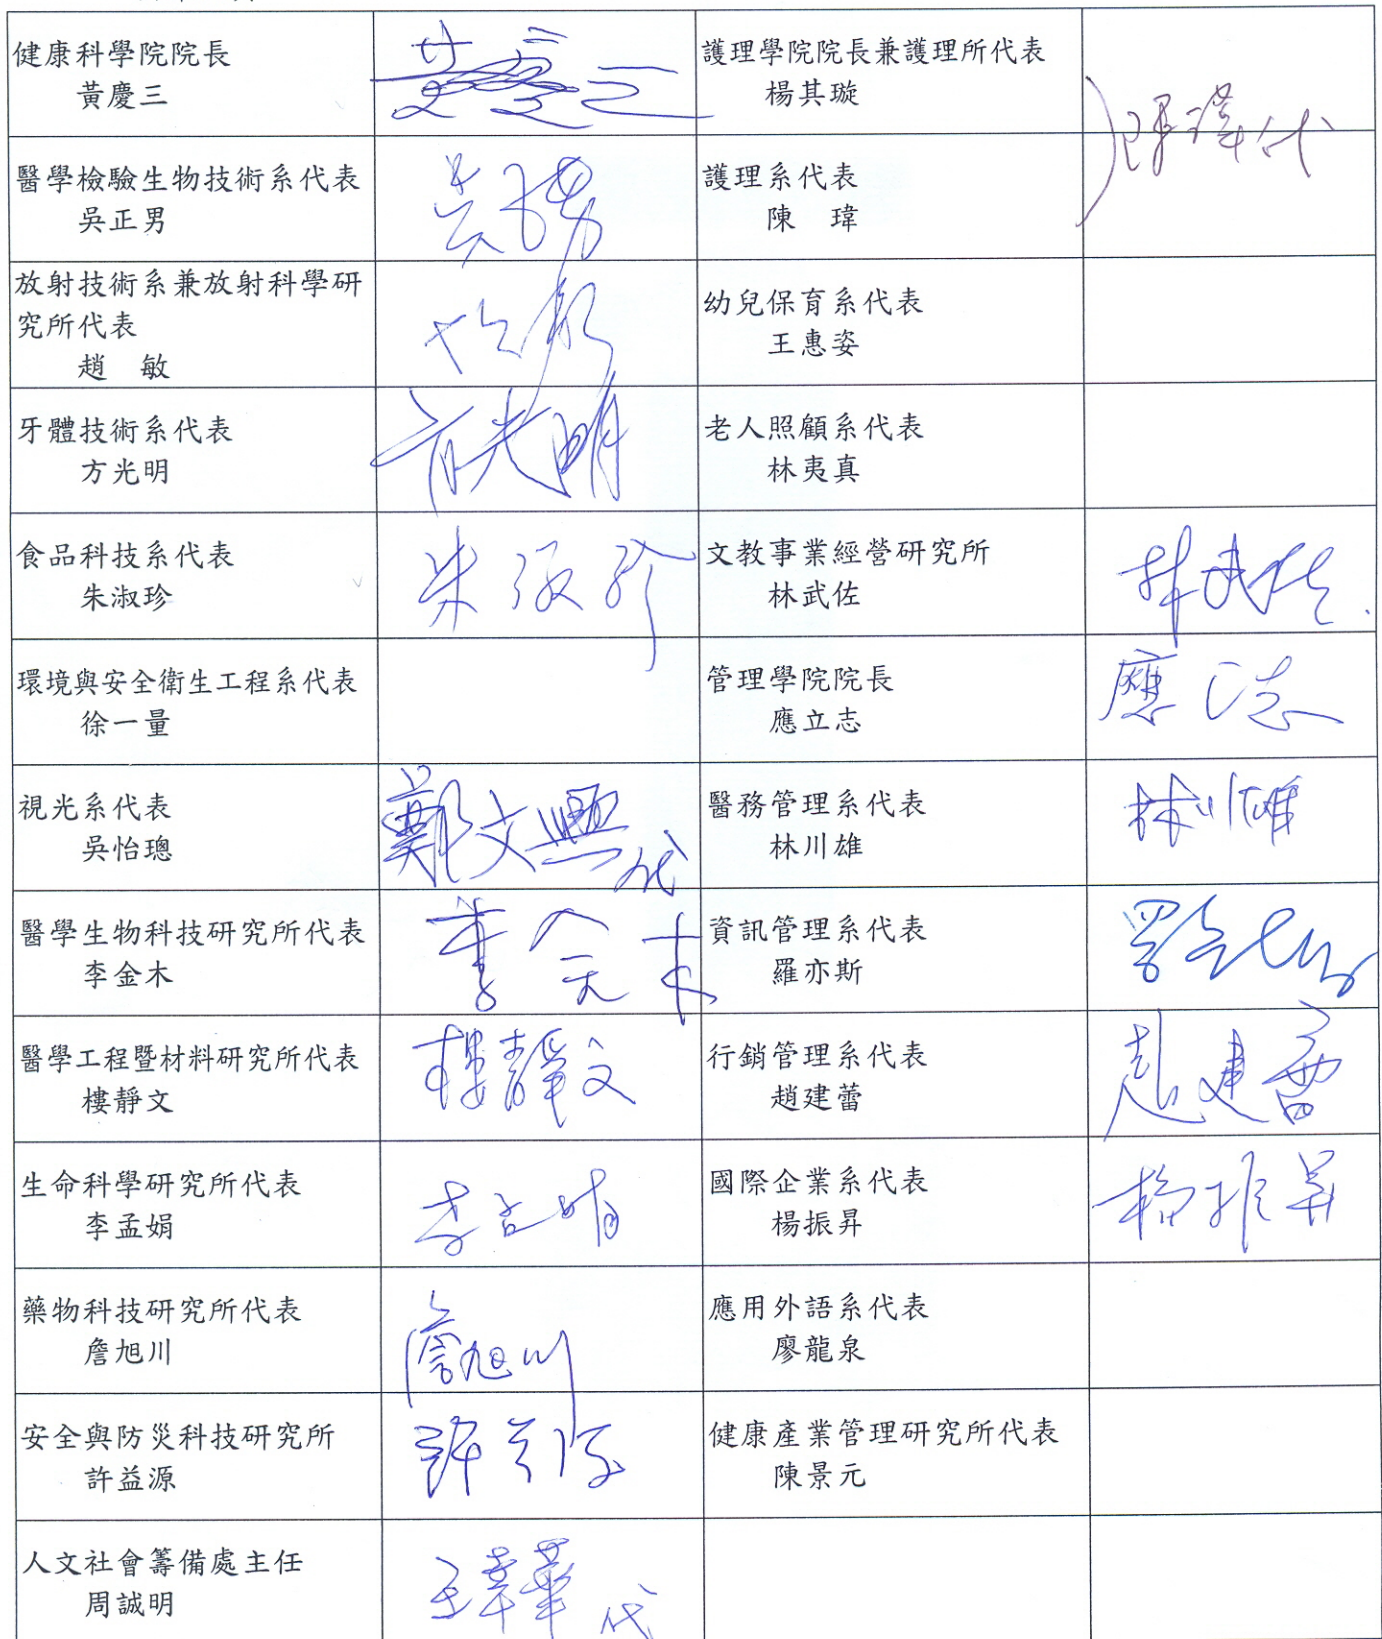 健康科學院院長
黃慶三
黃慶三
護理學院院長兼護理所代表
楊其璇
陳瑋代
醫學檢驗生物技術系代表
吳正男
護理系代表
陳　瑋
放射技術系兼放射科學研
究所代表
趙　敏
幼兒保育系代表
王惠姿
牙體技術系代表
方光明
方光明
老人照顧系代表
林夷真
食品科技系代表
朱淑珍
朱淑珍
文教事業經營研究所
林武佐
林武佐
環境與安全衛生工程系代表
徐一量
管理學院院長
應立志
應立志
視光系代表
吳怡璁
鄭文興代
醫務管理系代表
林川雄
林川雄
醫學生物科技研究所代表
李金木
李金木
資訊管理系代表
羅亦斯
醫學工程暨材料研究所代表
樓靜文
樓靜文
行銷管理系代表
趙建蕾
趙建蕾
生命科學研究所代表
李孟娟
李孟娟
國際企業系代表
楊振昇
楊振昇
藥物科技研究所代表
詹旭川
詹旭川
應用外語系代表
廖龍泉
安全與防災科技研究所
許益源
許益源
健康產業管理研究所代表
陳景元
人文社會籌備處主任
周誠明
代